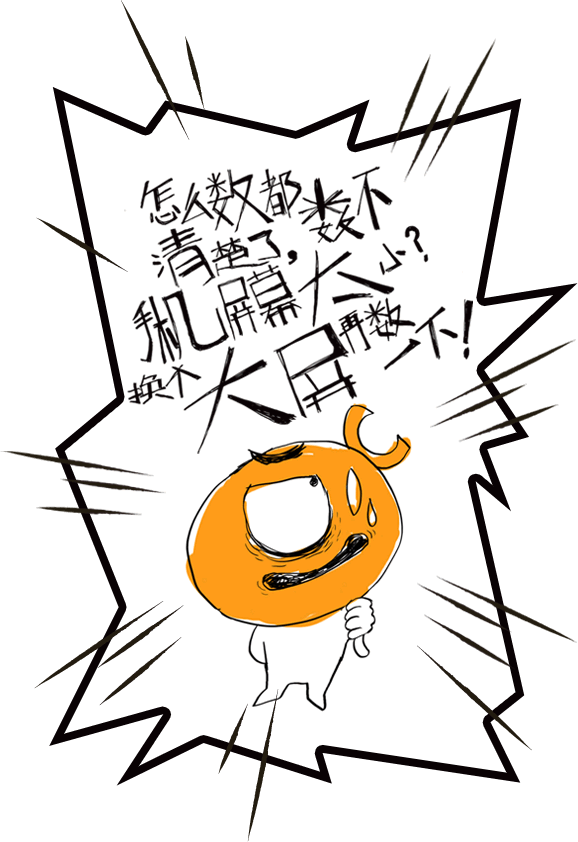 怎么数都数不
清楚了,
手机屏幕太小?
换个大屏再数一下!